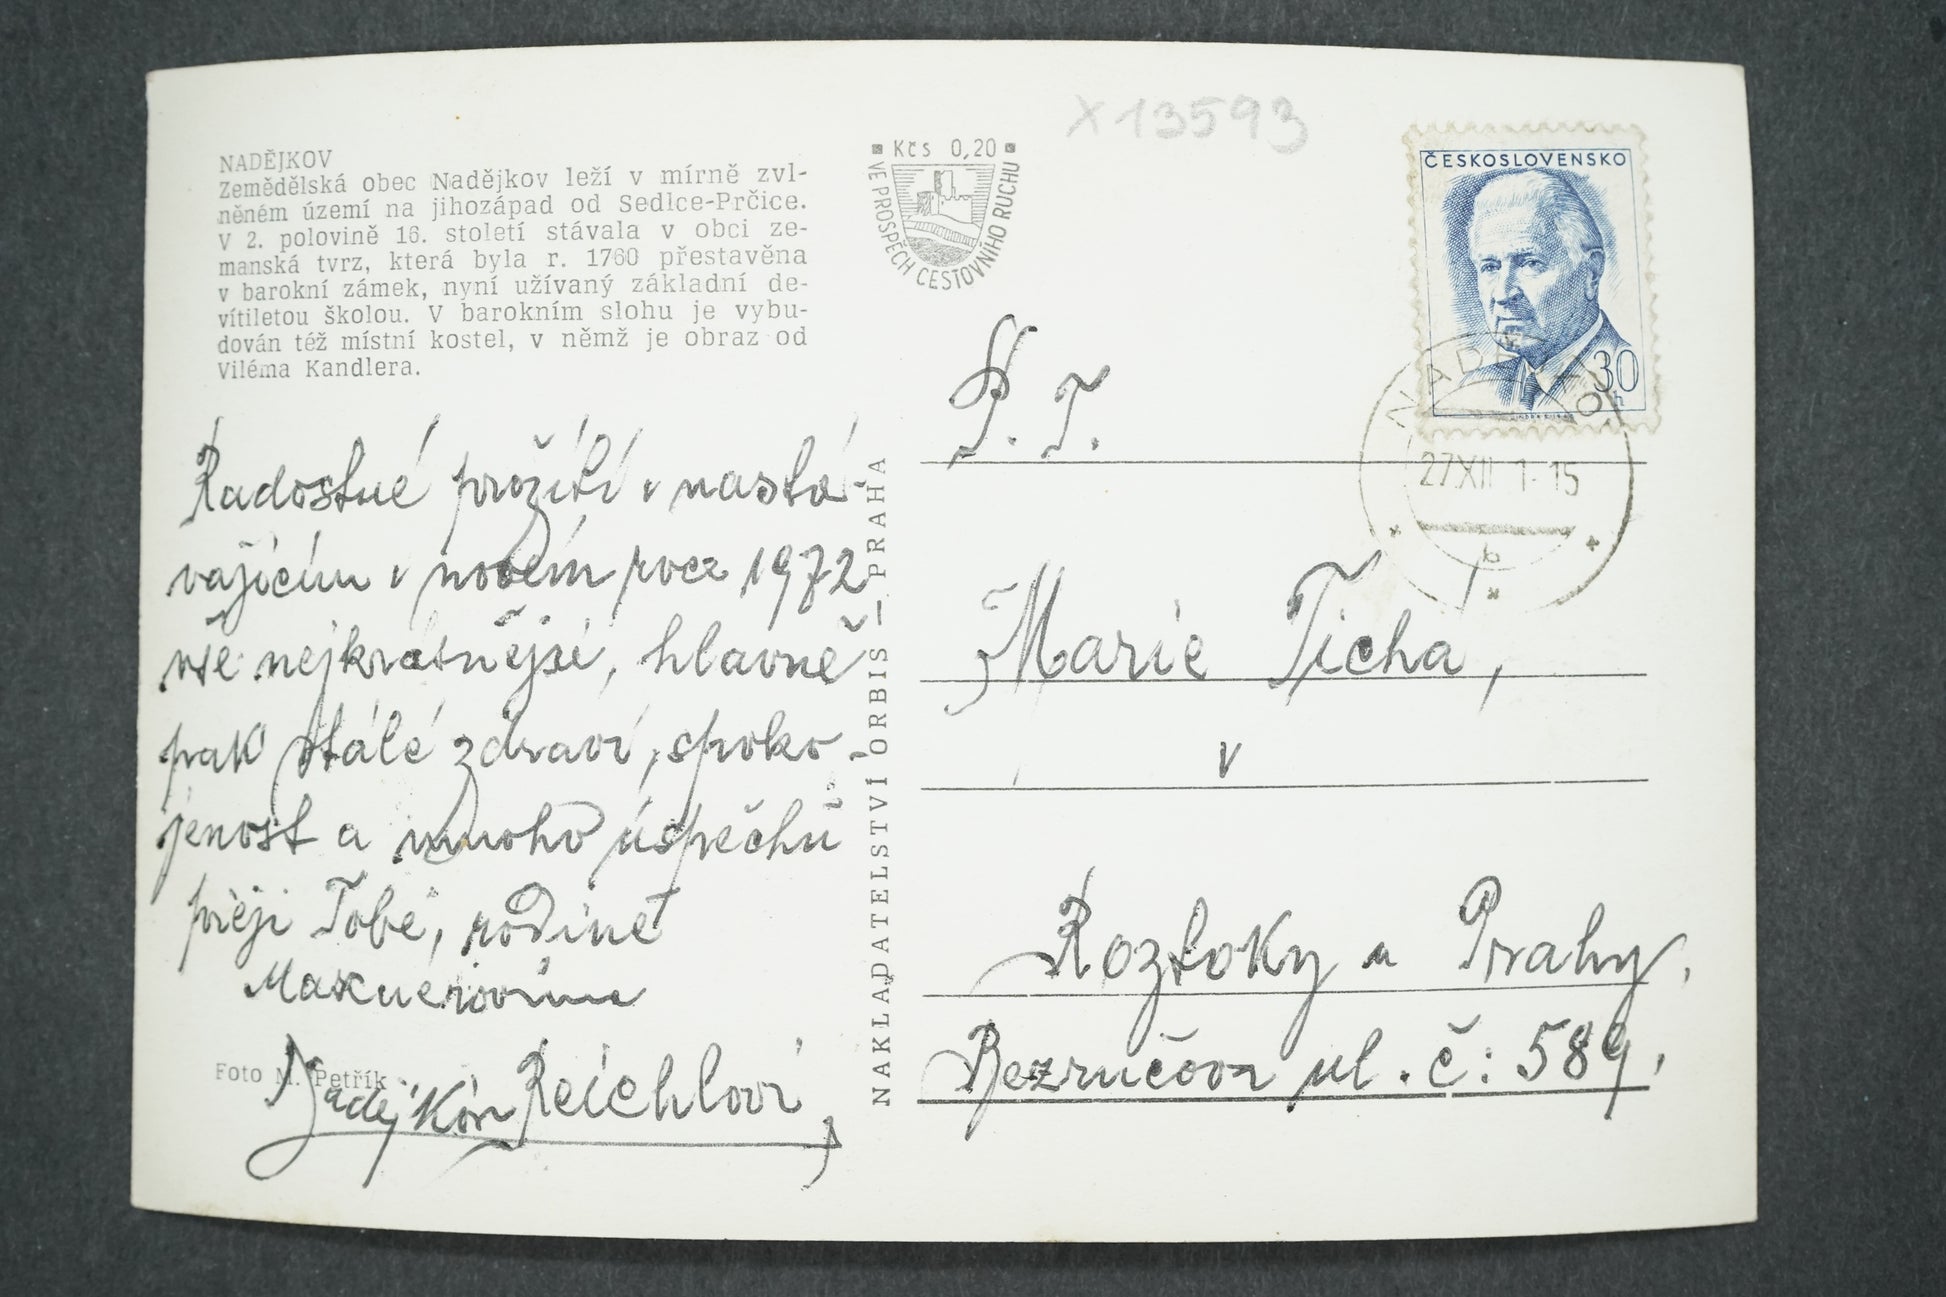 X13593
NADĚJKOV
Zemědělská obec Nadějkov leží v mírně zvl-
něném území na jihozápad od Sedlce-Prčice.
V 2. polovině 16. století stávala v obci ze-
manská tvrz, která byla r. 1760 přestavěna
v barokní zámek, nyní užívaný základní de-
vítiletou školou. V barokním slohu je vybu-
dován též místní kostel, v němž je obraz od
Viléma Kandlera.
Radostné prožití v nastá-
vajícím v novém roce 1972
vše nejkrásnější, hlavně
pak stálé zdraví, spoko-
jenost a mnoho úspěchů
přeji Tobě, rodině
Foto M. Petřík
Nadějkov Reichlovi,
NAKLADATELSTVÍ ORBIS — PRAHA
Kčs 0,20
VE PROSPĚCH CESTOVNÍHO RUCHU
ČESKOSLOVENSKO
30 h
NADĚJKOV
27XII 1-15
b
P. T.
Marie Tichá,
v
Roztoky u Prahy,
Bezručova ul. č: 589,